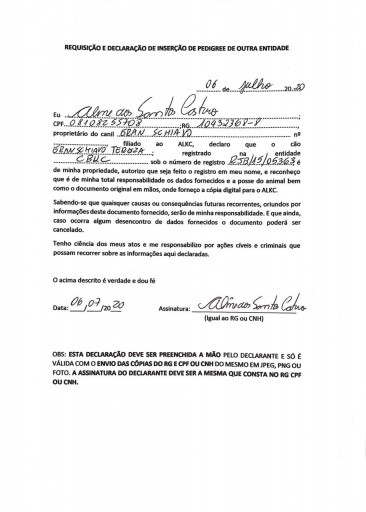 REQUISIÇÃO E DECLARAÇÃO DE INSERÇÃO DE PEDIGREE DE OUTRA ENTIDADE
06 de julho 20 20
Eu Aline dos Santos Castro
CPF 08108255708 ;RG 10432368-8 ;
proprietário do canil GRAN SCHIAVO nº
, filiado ao ALKC, declaro que o cão
GRAN SCHIAVO TEREZA ; registrado na entidade
CBKC sob o número de registro RJB/15/05363; é
de minha propriedade, autorizo que seja feito o registro em meu nome, e reconheço
que é de minha total responsabilidade os dados fornecidos e a posse do animal bem
como o documento original em mãos, onde forneço a cópia digital para o ALKC.
Sabendo-se que quaisquer causas ou consequências futuras recorrentes, oriundos por
informações deste documento fornecido, serão de minha responsabilidade. E que ainda,
caso ocorra algum desencontro de dados fornecidos o documento poderá ser
cancelado.
Tenho ciência dos meus atos e me responsabilizo por ações cíveis e criminais que
possam recorrer sobre as informações aqui declaradas.
O acima descrito é verdade e dou fé
Data: 06/07/2020 Assinatura: Aline dos Santos Castro
(Igual ao RG ou CNH)
OBS: ESTA DECLARAÇÃO DEVE SER PREENCHIDA A MÃO PELO DECLARANTE E SÓ É
VÁLIDA COM O ENVIO DAS CÓPIAS DO RG E CPF OU CNH DO MESMO EM JPEG, PNG OU
FOTO. A ASSINATURA DO DECLARANTE DEVE SER A MESMA QUE CONSTA NO RG CPF
OU CNH.